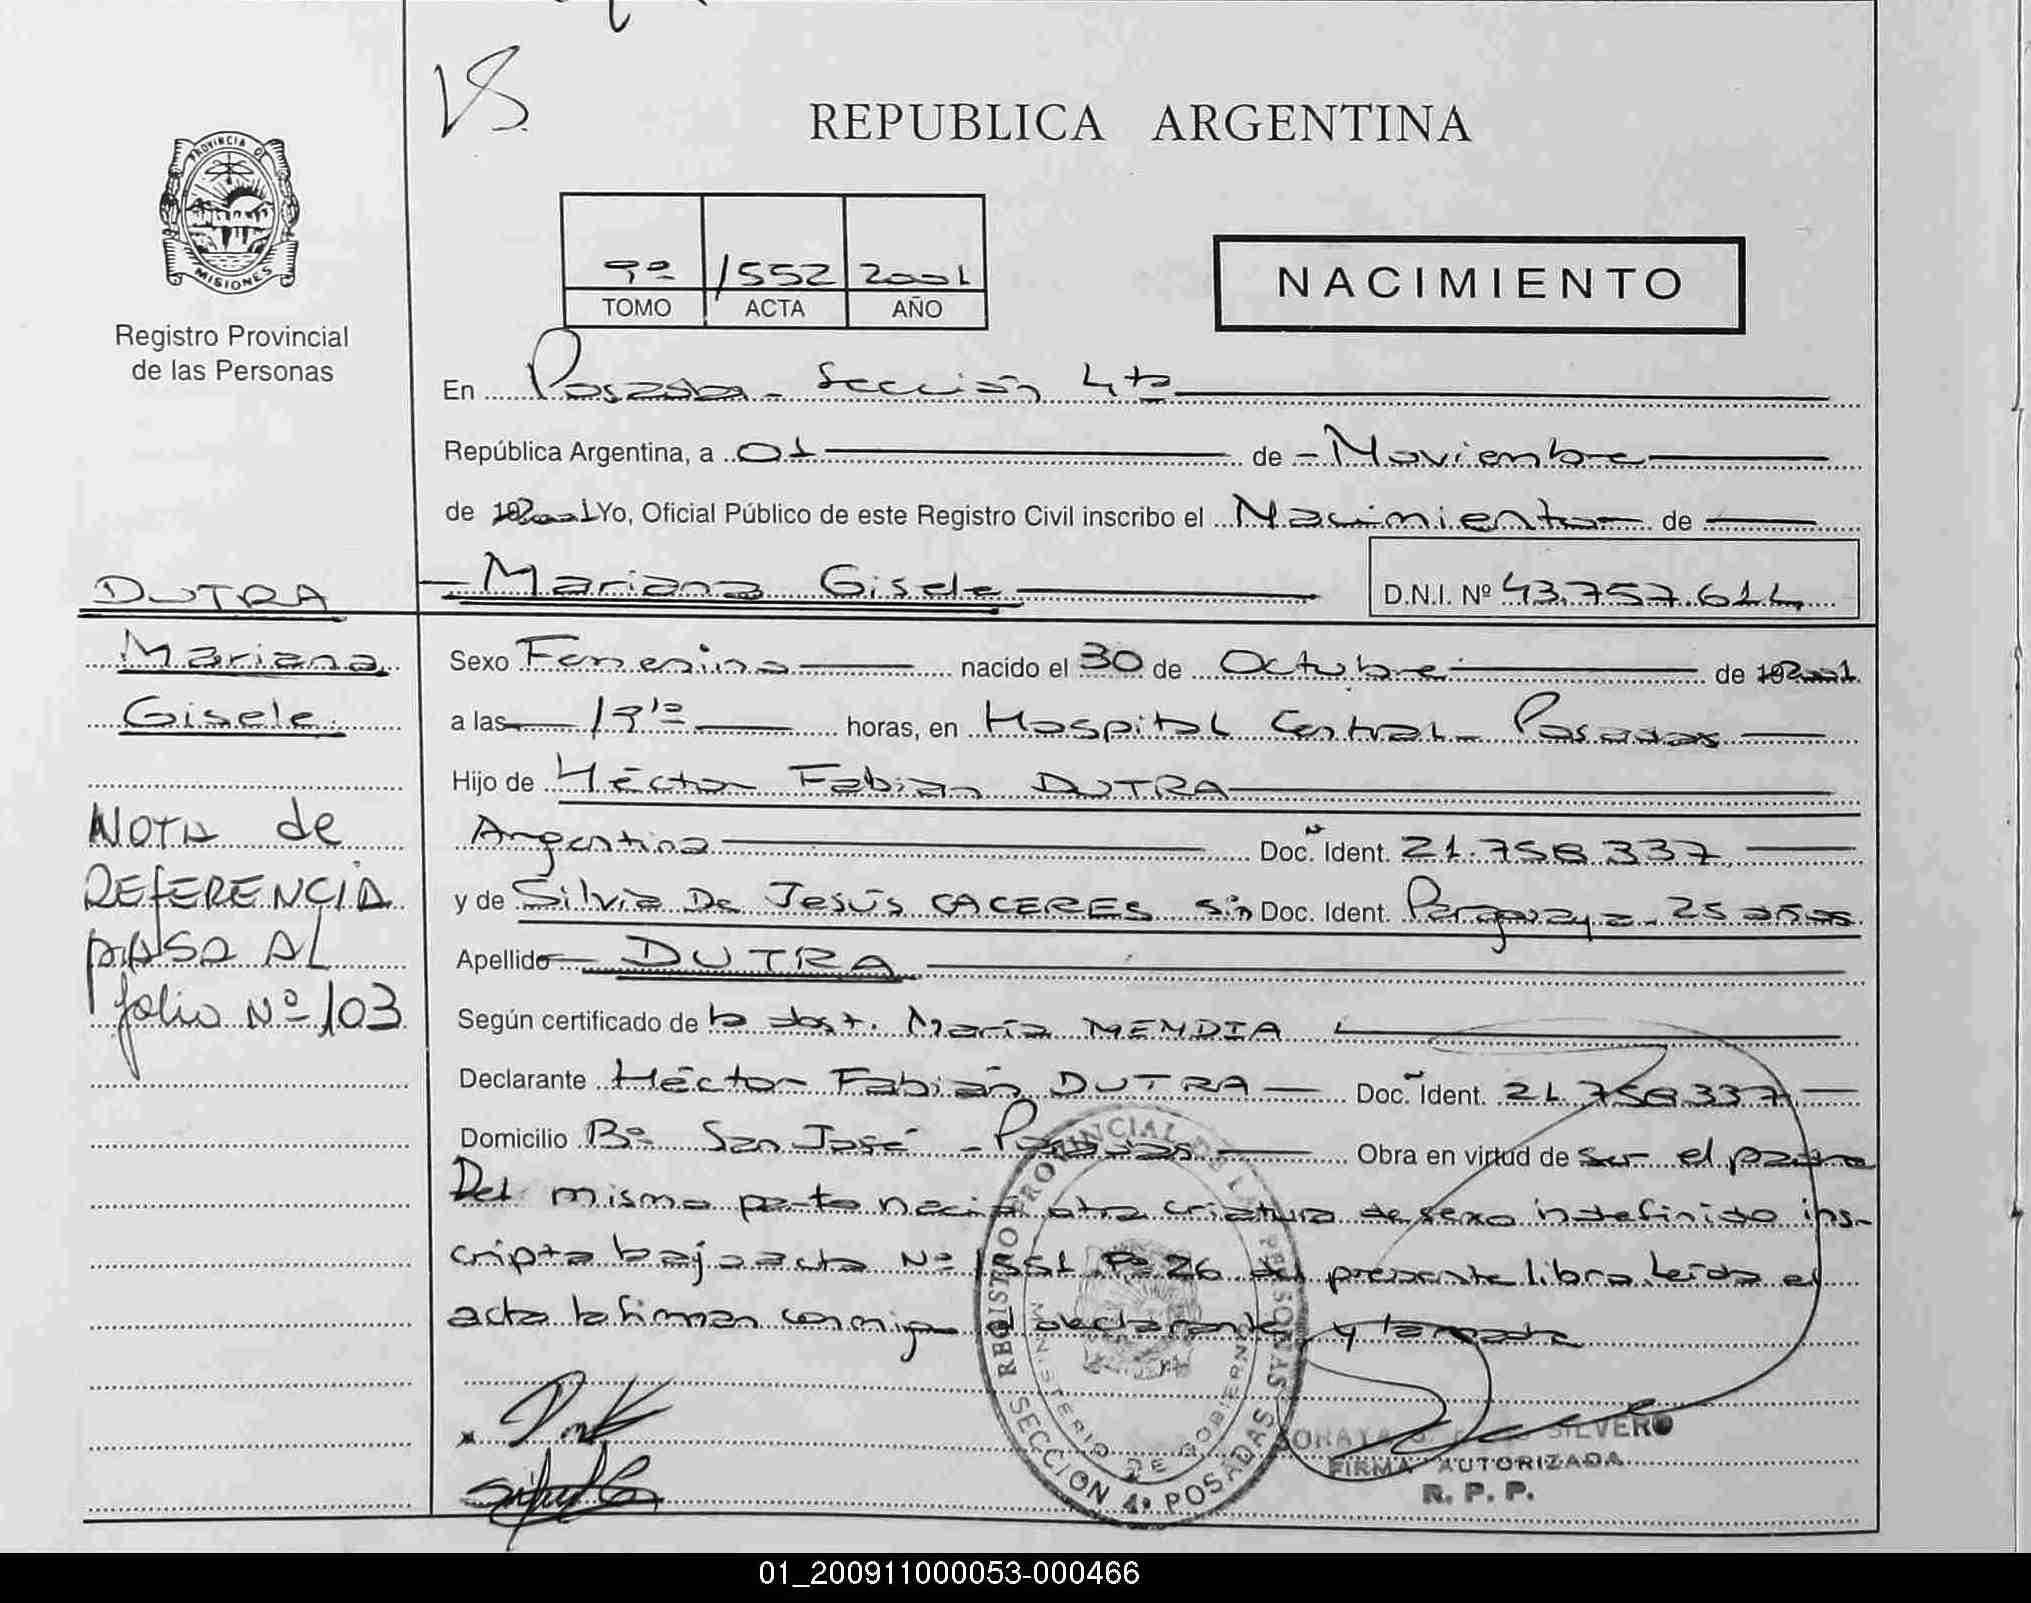 VS.
REPUBLICA ARGENTINA
PROVINCIA DE
MISIONES
Registro Provincial
de las Personas
9º 1552 2001
TOMO ACTA AÑO
NACIMIENTO
En Posadas - Sección 4ta
República Argentina, a 01 de - Noviembre
de 2001 Yo, Oficial Público de este Registro Civil inscribo el Nacimiento de
Mariana Gisele D.N.I. Nº 43.757.614
DUTRA
Mariana
Gisele
NOTA de
REFERENCIA
PASA AL
folio Nº 103
Sexo Femenino nacido el 30 de Octubre de 2001
a las 19 horas, en Hospital Central - Posadas
Hijo de Héctor Fabian DUTRA
Argentina Doc. Ident. 21.758.337
y de Silvia De Jesús CACERES Doc. Ident. Paraguaya
Apellido DUTRA
Según certificado de la obst. María MENDIA
Declarante Héctor Fabián DUTRA Doc. Ident. 21.758.337
Domicilio Bº San José - Posadas Obra en virtud de ser el padre
Del mismo parto nació otra criatura de sexo indefinido ins-
cripta bajo acta Nº 1551 Fº 26 del presente libro. Leída el
acta la firman conmigo el declarante y la madre
REGISTRO PROVINCIAL DE LAS PERSONAS
MINISTERIO DE GOBIERNO
SECCION 4ª POSADAS
SILVERO
FIRMA AUTORIZADA
R. P. P.
01_200911000053-000466